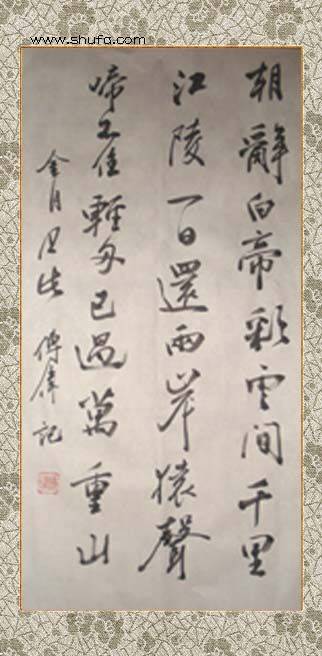 www.shufa.com
朝辭白帝彩雲間千里
江陵一日還兩岸猿聲
啼不住輕舟已過萬重山
月 記